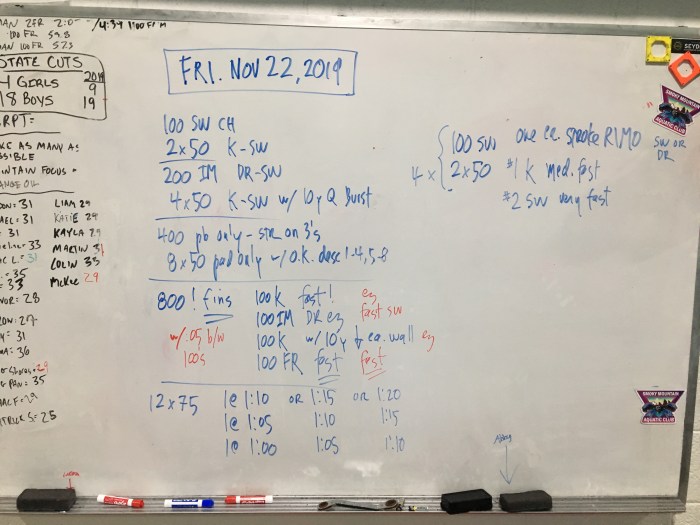 2FR 2:0
100 FR 59.8
100 FR 52.5
STATE CUTS
2019
GIRLS 9
18 BOYS 19
RPT:
AS MANY AS
FOCUS
= 31
= 31
31
33
31
= 35
= 33
= 28
27
31
= 36
29
= 35
= 25
LIAM 29
KATIE 29
KAYLA 29
MARTIN 31
COLIN 35
McKee 29
FRI. NOV 22, 2019
100 SW CH
2x50 K-SW
200 IM DR-SW
4x50 K-SW w/ 10y Q Burst
400 pb only - str on 3's
8x50 pad only w/ o.k. desc 1-4, 5-8
800! fins 100k fast! ez
100IM DR ez fast sw
w/ :05 b/w 100k w/ 10y ↓ ea. wall ez
100s 100 FR fast fast
12x75 1@ 1:10 OR 1:15 OR 1:20
1@ 1:05 1:10 1:15
1@ 1:00 1:05 1:10
4x { 100 SW one ea. stroke RIMO SW OR DR
2x50 #1 K med. fast
#2 SW very fast
SMOKY MOUNTAIN
AQUATIC CLUB
SMOKY MOUNTAIN
AQUATIC CLUB